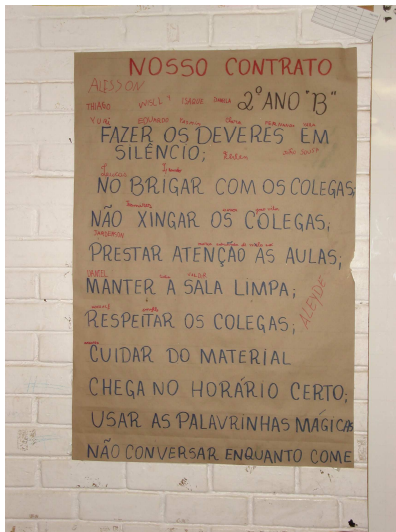 NOSSO CONTRATO
ALESSON
2º ANO "B"
THIAGO ISAQUE
EDUARDO
FAZER OS DEVERES EM
SILÊNCIO;
NO BRIGAR COM OS COLEGAS;
NÃO XINGAR OS COLEGAS;
PRESTAR ATENÇÃO AS AULAS;
MANTER A SALA LIMPA;
RESPEITAR OS COLEGAS;
ALEYDE
CUIDAR DO MATERIAL
CHEGA NO HORÁRIO CERTO;
USAR AS PALAVRINHAS MÁGICAS
NÃO CONVERSAR ENQUANTO COME